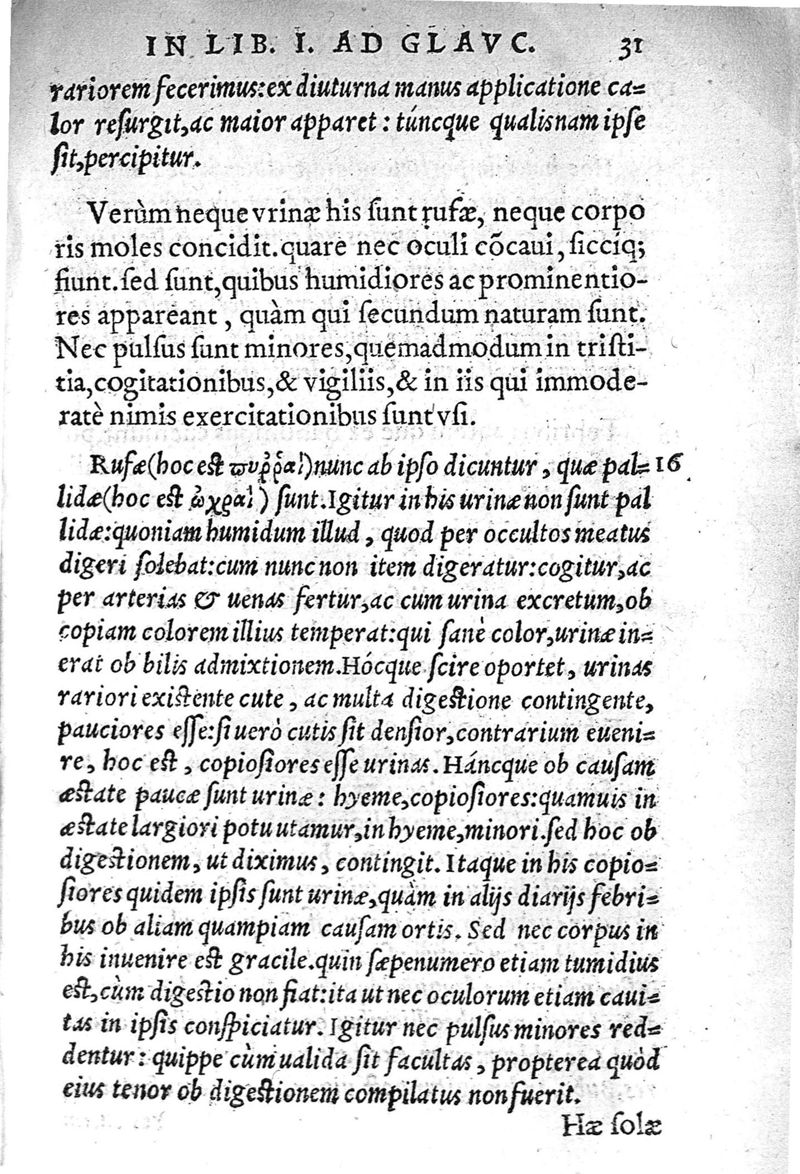 IN LIB. I. AD GLAVC. 31
rariorem fecerimus: ex diuturna manus applicatione ca=
lor resurgit, ac maior apparet : túncque qualisnam ipse
sit, percipitur.
Verùm neque vrinæ his sunt rufæ, neque corpo
ris moles concidit. quare nec oculi cōcaui, sicciq;
fiunt. sed sunt, quibus humidiores ac prominentio-
res appareant, quàm qui secundum naturam sunt.
Nec pulsus sunt minores, quemadmodum in tristi-
tia, cogitationibus, & vigiliis, & in iis qui immode-
ratè nimis exercitationibus sunt vsi.
Rufæ (hoc est ϖυῤῥαὶ) nunc ab ipso dicuntur, quæ pal= 16
lidæ (hoc est ὠχραὶ) sunt. Igitur in his urinæ non sunt pal
lidæ: quoniam humidum illud, quod per occultos meatus
digeri solebat: cum nunc non item digeratur: cogitur, ac
per arterias & uenas fertur, ac cum urina excretum, ob
copiam colorem illius temperat: qui sanè color, urinæ in=
erat ob bilis admixtionem. Hócque scire oportet, urinas
rariori existente cute, ac multa digestione contingente,
pauciores esse: si uerò cutis sit densior, contrarium eueni=
re, hoc est, copiosiores esse urinas. Háncque ob causam
æstate paucæ sunt urinæ: hyeme, copiosiores: quamuis in
æstate largiori potu utamur, in hyeme, minori. sed hoc ob
digestionem, ut diximus, contingit. Itaque in his copio=
siores quidem ipsis sunt urinæ, quàm in alijs diarijs febri=
bus ob aliam quampiam causam ortis. Sed nec corpus in
his inuenire est gracile. quin sæpenumero etiam tumidius
est, cùm digestio non fiat: ita ut nec oculorum etiam caui=
tas in ipsis conspiciatur. Igitur nec pulsus minores red=
dentur: quippe cùm ualida sit facultas, propterea quòd
eius tenor ob digestionem compilatus non fuerit.
Hæ solæ